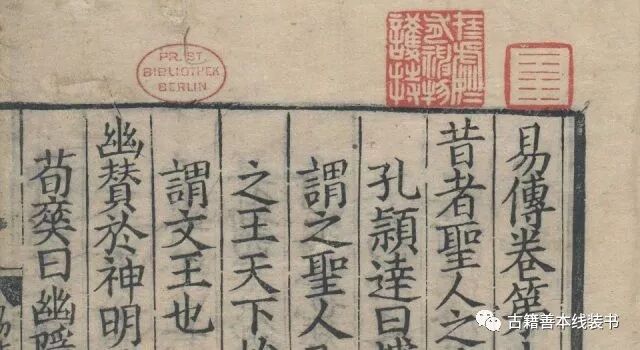 PR. ST.
BIBLIOTHEK
BERLIN
易傳卷第
昔者聖人之
孔穎達曰據
謂之聖人
之王天下
謂文王也
幽贊於神明
荀爽曰幽隱
古籍善本线装书